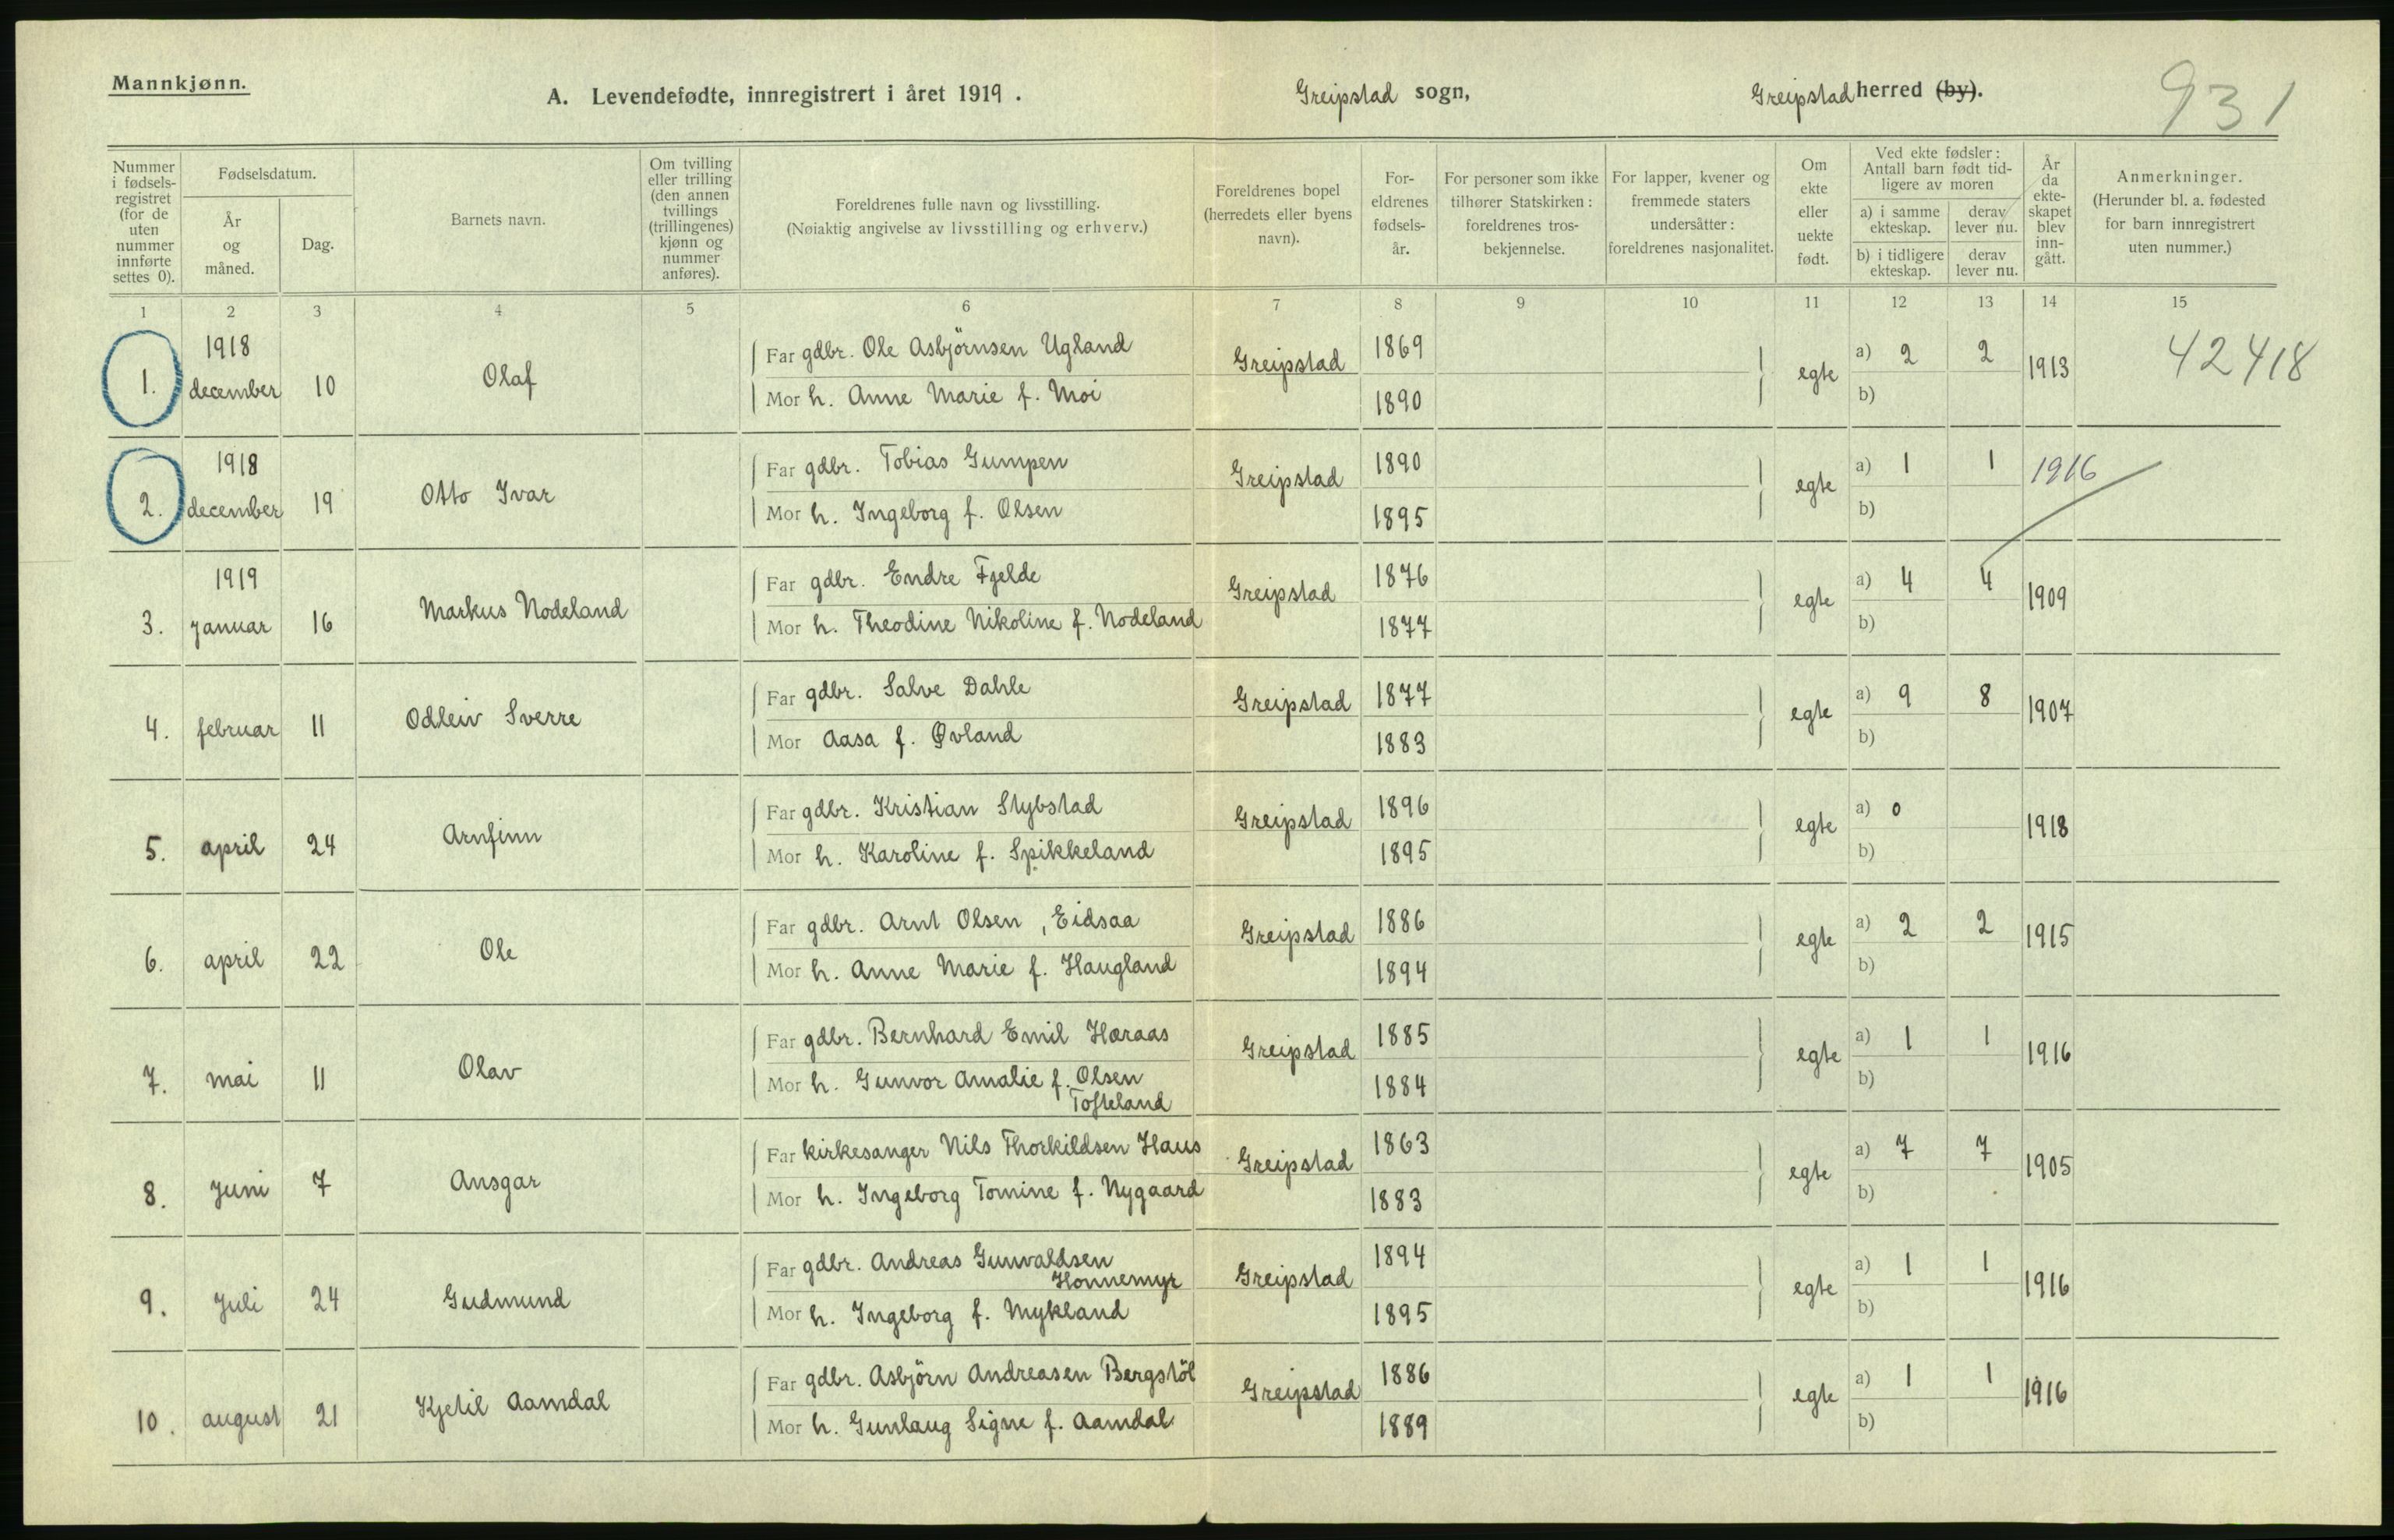 Mannkjønn.
A. Levendefødte, innregistrert i året 1919 . Greipstad sogn, Greipstad herred (by).
931
Nummer i fødsels- registret (for de uten nummer innførte settes 0).
Fødselsdatum.
År og måned.
Dag.
Barnets navn.
Om tvilling eller trilling (den annen tvillings (trillingenes) kjønn og nummer anføres).
Foreldrenes fulle navn og livsstilling.
(Nøiaktig angivelse av livsstilling og erhverv.)
Foreldrenes bopel (herredets eller byens navn).
For- eldrenes fødsels- år.
For personer som ikke tilhører Statskirken: foreldrenes tros- bekjennelse.
For lapper, kvener og fremmede staters undersåtter: foreldrenes nasjonalitet.
Om ekte eller uekte født.
Ved ekte fødsler: Antall barn født tid- ligere av moren
a) i samme ekteskap. derav lever nu.
b) i tidligere ekteskap. derav lever nu.
År da ekte- skapet blev inn- gått.
Anmerkninger.
(Herunder bl. a. fødested for barn innregistrert uten nummer.)
1 2 3 4 5 6 7 8 9 10 11 12 13 14 15
1918
Far gdbr. Ole Asbjörnsen Ugland 1869 a) 2 2
1. december 10 Olaf Greipstad egte 1913 42418
Mor h. Anne Marie f. Moi 1890 b)
1918
Far gdbr. Tobias Gumpen 1890 a) 1 1 1916
2. december 19 Otto Ivar Greipstad egte
Mor h. Ingeborg f. Olsen 1895 b)
1919
Far gdbr. Endre Fjelde 1876 a) 4 4
3. januar 16 Markus Nodeland Greipstad egte 1909
Mor h. Theodine Nikoline f. Nodeland 1877 b)
Far gdbr. Salve Dahle 1877 a) 9 8
4. februar 11 Odleiv Sverre Greipstad egte 1907
Mor Aasa f. Øvland 1883 b)
Far gdbr. Kristian Stybstad 1896 a) 0
5. april 24 Arnfinn Greipstad egte 1918
Mor h. Karoline f. Spikkeland 1895 b)
Far gdbr. Arnt Olsen , Eidsaa 1886 a) 2 2
6. april 22 Ole Greipstad egte 1915
Mor h. Anne Marie f. Haugland 1894 b)
Far gdbr. Bernhard Emil Høraas 1885 a) 1 1
7. mai 11 Olav Greipstad egte 1916
Mor h. Gunvor Amalie f. Olsen 1884 b)
Tofteland
Far kirkesanger Nils Thorkildsen Haus 1863 a) 7 7
8. juni 7 Ansgar Greipstad egte 1905
Mor h. Ingeborg Tomine f. Nygaard 1883 b)
Far gdbr. Andreas Gunvaldsen 1894 a) 1 1
Honnemyr
9. juli 24 Gudmund Greipstad egte 1916
Mor h. Ingeborg f. Mykland 1895 b)
Far gdbr. Asbjörn Andreasen Bergstöl 1886 a) 1 1
10. august 21 Kjetil Aamdal Greipstad egte 1916
Mor h. Gunlaug Signe f. Aamdal 1889 b)